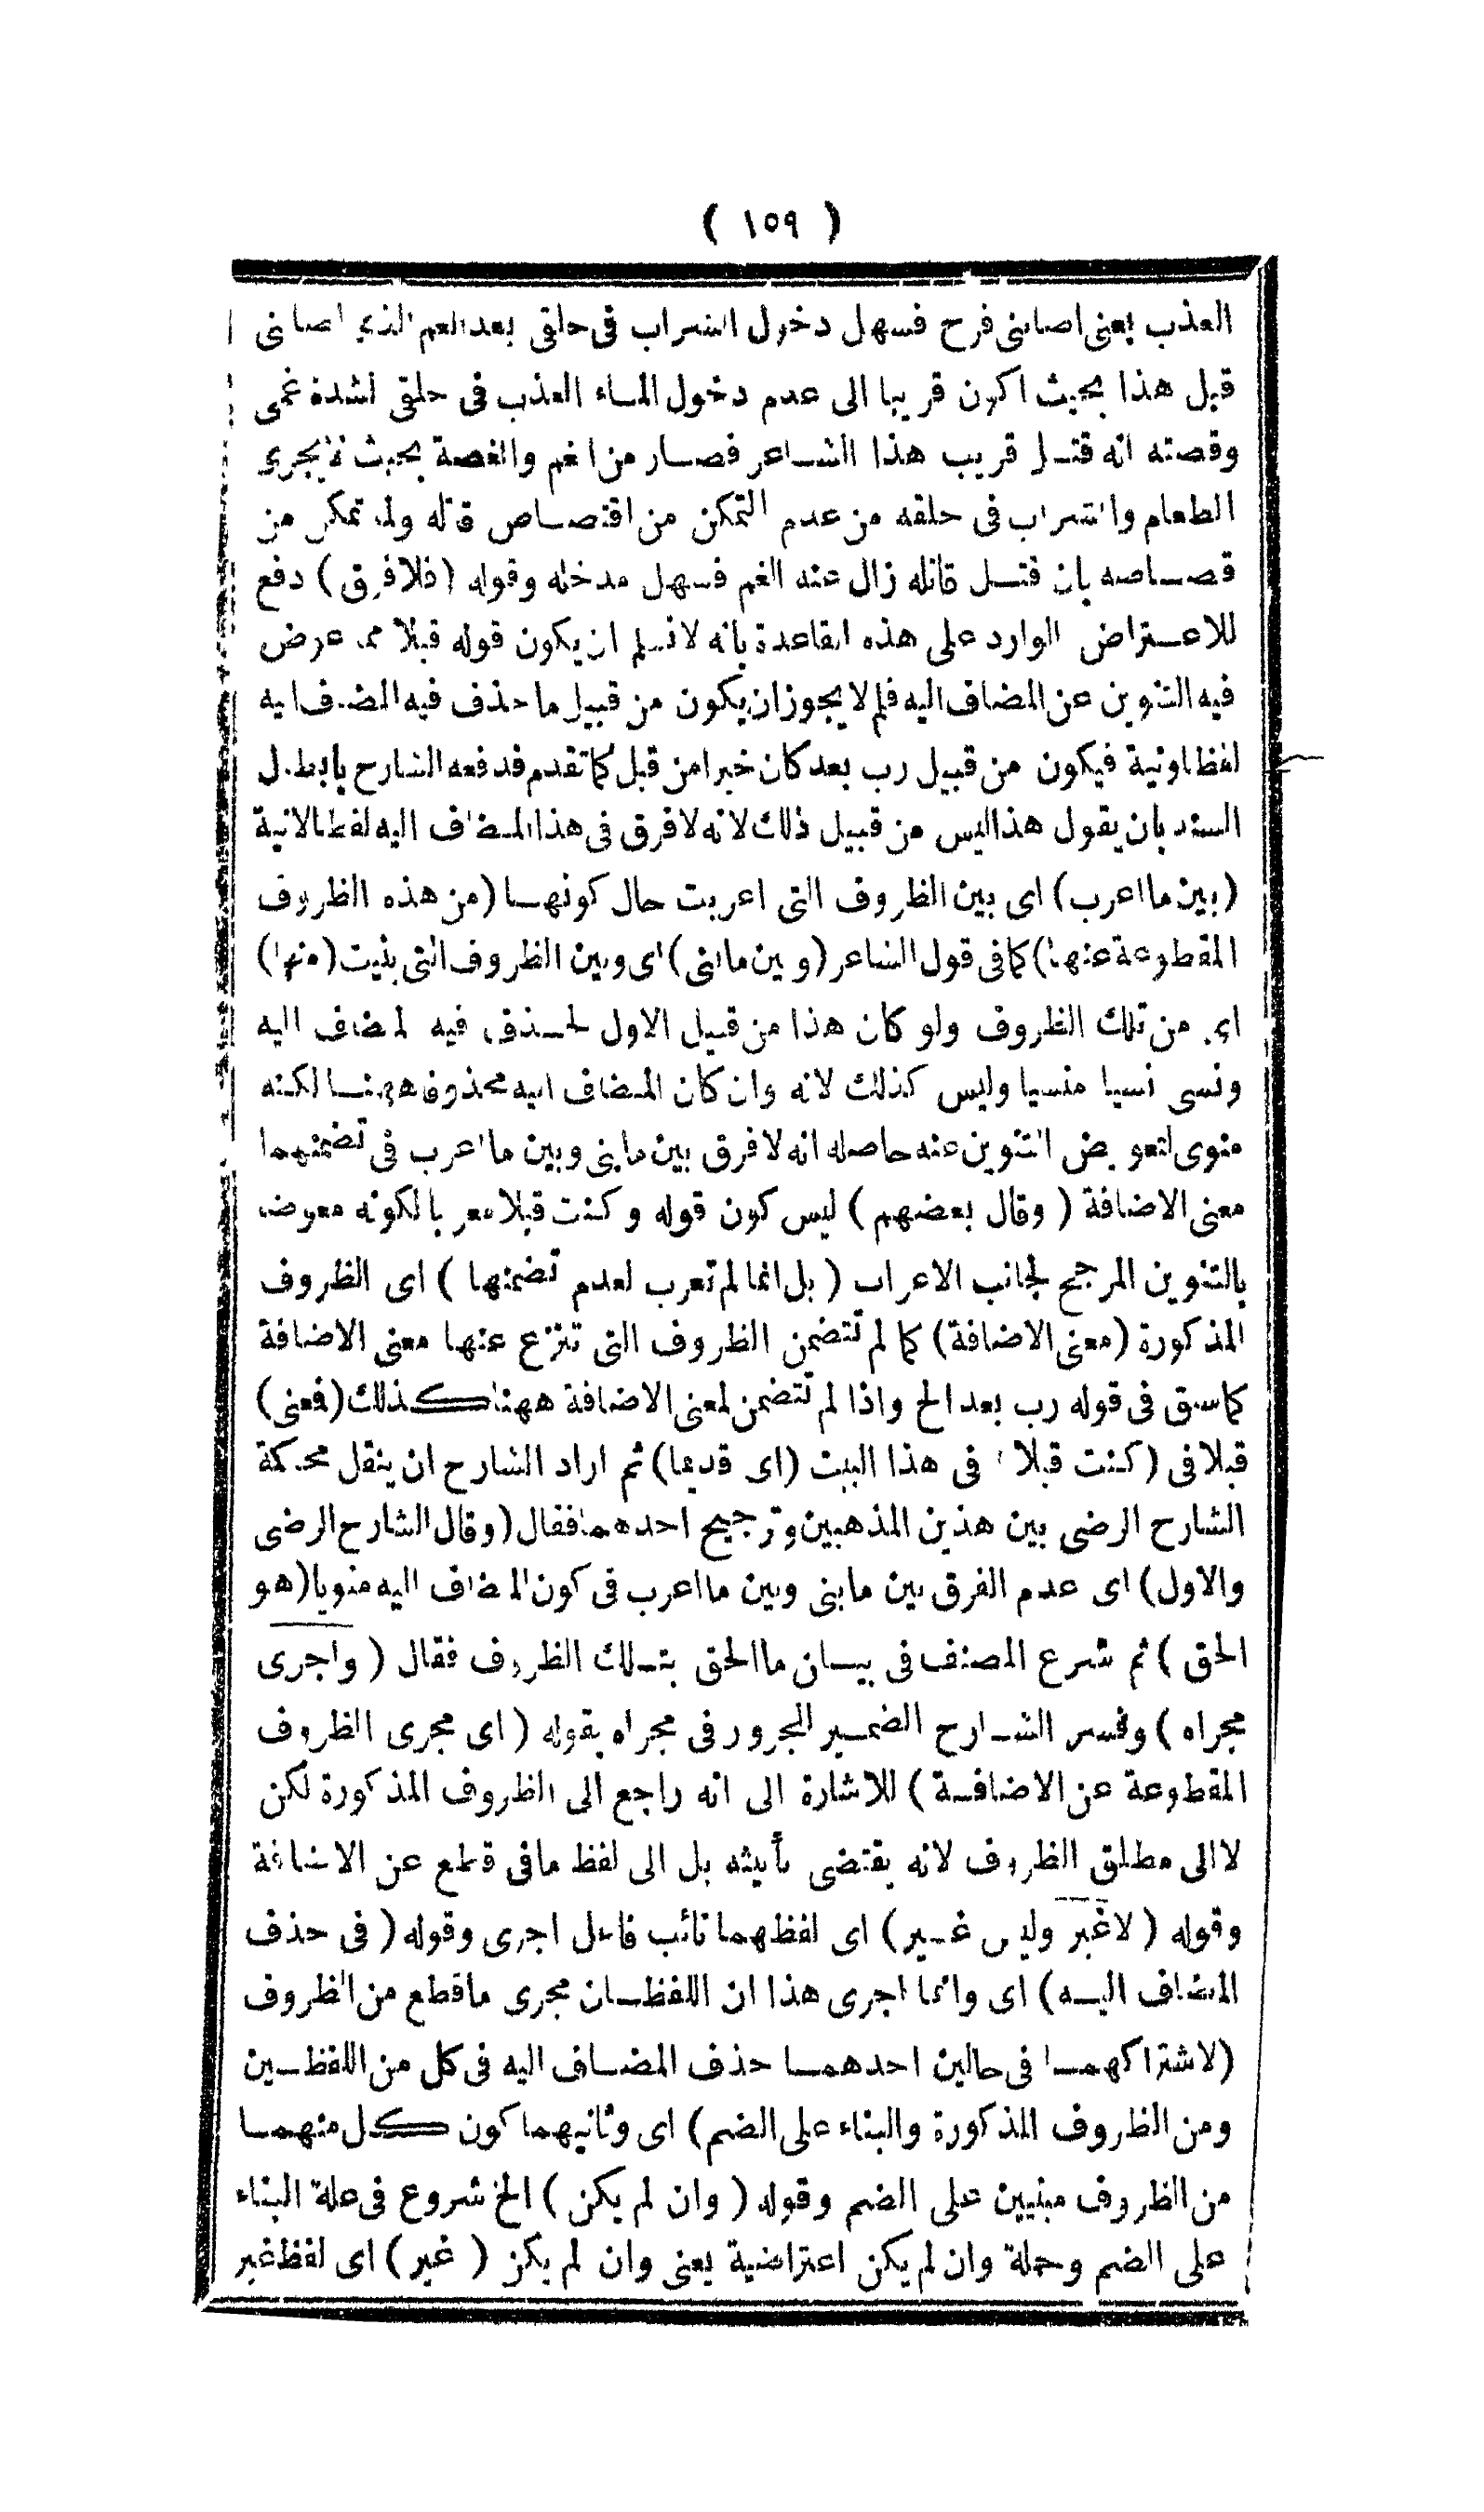 ( ١٥٩ )
العذب يعنى اصابنى فرح فسهل دخول الشراب فى حلقى بعد الغم الذى اصابنى
قبل هذا بحيث اكون قريبا الى عدم دخول الماء العذب فى حلقى لشدة غمى
وقصته انه قتل قريب هذا الشاعر فصار من الغم والغصة بحيث لايجرى
الطعام والشراب فى حلقه من عدم التمكن من اقتصاص قاتله ولما تمكن من
قصاصه بان قتل قاتله زال عنه الغم فسهل مدخله وقوله (فلافرق) دفع
للاعتراض الوارد على هذه القاعدة بانه لانسلم ان يكون قوله قبلا مما عوض
فيه التنوين عن المضاف اليه فلم لايجوز ان يكون من قبيل ماحذف فيه المضاف ايه
لفظا ونية فيكون من قبيل رب بعد كان خيرا من قبل كما تقدم فدفعه الشارح بابطال
السند بان يقول هذا ليس من قبيل ذلك لانه لافرق فى هذا المضاف اليه لفظا لانية
(بين ما اعرب) اى بين الظروف التى اعربت حال كونها (من هذه الظروف
المقطوعة عنها) كما فى قول الشاعر (وبين مابنى) اى وبين الظروف التى بنيت (منها)
اى من تلك الظروف ولو كان هذا من قبيل الاول لحذف فيه المضاف اليه
ونسى نسيا منسيا وليس كذلك لانه وان كان المضاف اليه محذوفا ههنا لكنه
منوى لتعويض التنوين عنه حاصله انه لافرق بين مابنى وبين ما اعرب فى تضمنهما
معنى الاضافة ( وقال بعضهم ) ليس كون قوله وكنت قبلا معربا لكونه معوضا
بالتنوين المرجح لجانب الاعراب ( بل انما لم تعرب لعدم تضمنها ) اى الظروف
المذكورة (معنى الاضافة) كما لم تتضمن الظروف التى تنزع عنها معنى الاضافة
كما سبق فى قوله رب بعد الخ واذا لم تتضمن لمعنى الاضافة ههنا كذلك (فمعنى)
قبلا فى (كنت قبلا) فى هذا البيت (اى قديما) ثم اراد الشارح ان ينقل محاكمة
الشارح الرضى بين هذين المذهبين وترجيح احدهما فقال (وقال الشارح الرضى
والاول) اى عدم الفرق بين مابنى وبين ما اعرب فى كون المضاف اليه منويا (هو
الحق ) ثم شرع المصنف فى بيان ما الحق بتلك الظروف فقال ( واجرى
مجراه ) وفسر الشارح الضمير المجرور فى مجراه بقوله ( اى مجرى الظروف
المقطوعة عن الاضافة ) للاشارة الى انه راجع الى الظروف المذكورة لكن
لا الى مطلق الظروف لانه يقتضى تأنيثه بل الى لفظ مافى قطع عن الاضافة
وقوله ( لاغير وليس غير) اى لفظهما نائب فاعل اجرى وقوله ( فى حذف
المضاف اليه) اى وانما اجرى هذا ان اللفظان مجرى ماقطع من الظروف
(لاشتراكهما فى حالين احدهما حذف المضاف اليه فى كل من اللفظين
ومن الظروف المذكورة والبناء على الضم) اى وثانيهما كون كل منهما
من الظروف مبنيين على الضم وقوله ( وان لم يكن ) الخ شروع فى علة البناء
على الضم وجملة وان لم يكن اعتراضية يعنى وان لم يكن ( غير) اى لفظ غير